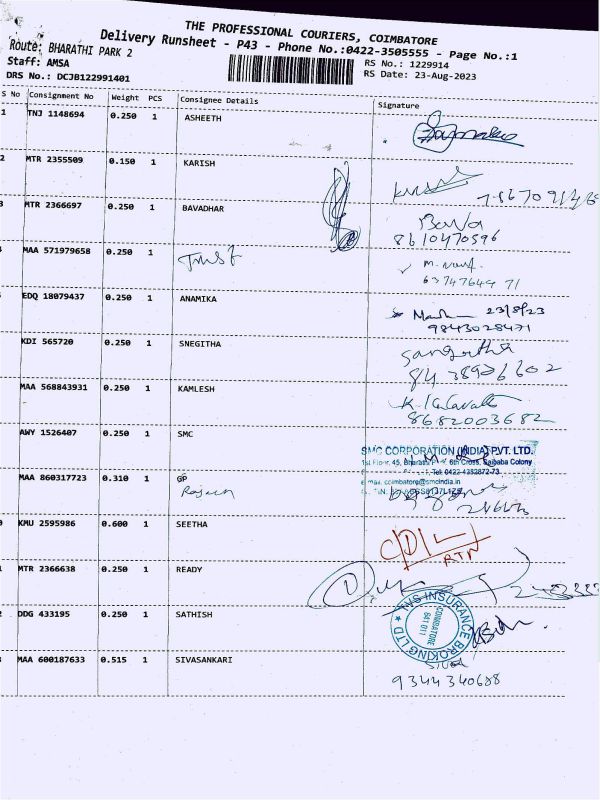 THE PROFESSIONAL COURIERS, COIMBATORE
Delivery Runsheet - P43 - Phone No.:0422-3505555 - Page No.:1
Route: BHARATHI PARK 2
Staff: AMSA
RS No.: 1229914
DRS No.: DCJB122991401
RS Date: 23-Aug-2023
S No Consignment No Weight PCS Consignee Details Signature
1 TNJ 1148694 0.250 1 ASHEETH
2 MTR 2355509 0.150 1 KARISH
3 MTR 2366697 0.250 1 BAVADHAR
Bava
8610470596
MAA 571979658 0.250 1 Trust
EDQ 18079437 0.250 1 ANAMIKA
23/8/23
9843028471
KDI 565720 0.250 1 SNEGITHA
Sangeetha
MAA 568843931 0.250 1 KAMLESH
8682003682
AWY 1526407 0.250 1 SMC
SMC CORPORATION (INDIA) PVT. LTD.
6th Cross, Saibaba Colony
MAA 860317723 0.310 1 GP
KMU 2595986 0.600 1 SEETHA
CDL
RTN
MTR 2366638 0.250 1 READY
DDG 433195 0.250 1 SATHISH
TVS INSURANCE BROKING LTD
COIMBATORE
641 011
MAA 600187633 0.515 1 SIVASANKARI
9344340688